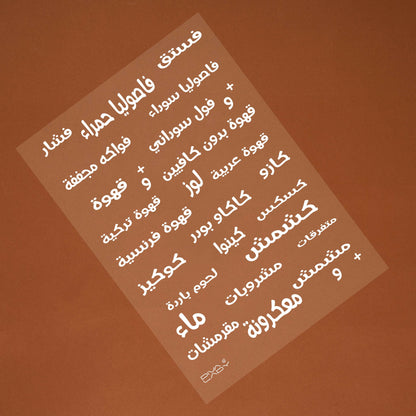 فستق
فاصوليا حمراء
فشار
فاصوليا سوداء
+ و
فول سوداني
فواكه مجففة
قهوة بدون كافيين
+ و
قهوة
قهوة عربية
لوز
قهوة تركية
كازو
كاكاو بودر
قهوة فرنسية
كسكس
كشمش
كينوا
كوكيز
متفرقات
لحوم باردة
مشمش
+ و
مشروبات
معكرونة
ماء
مقرمشات